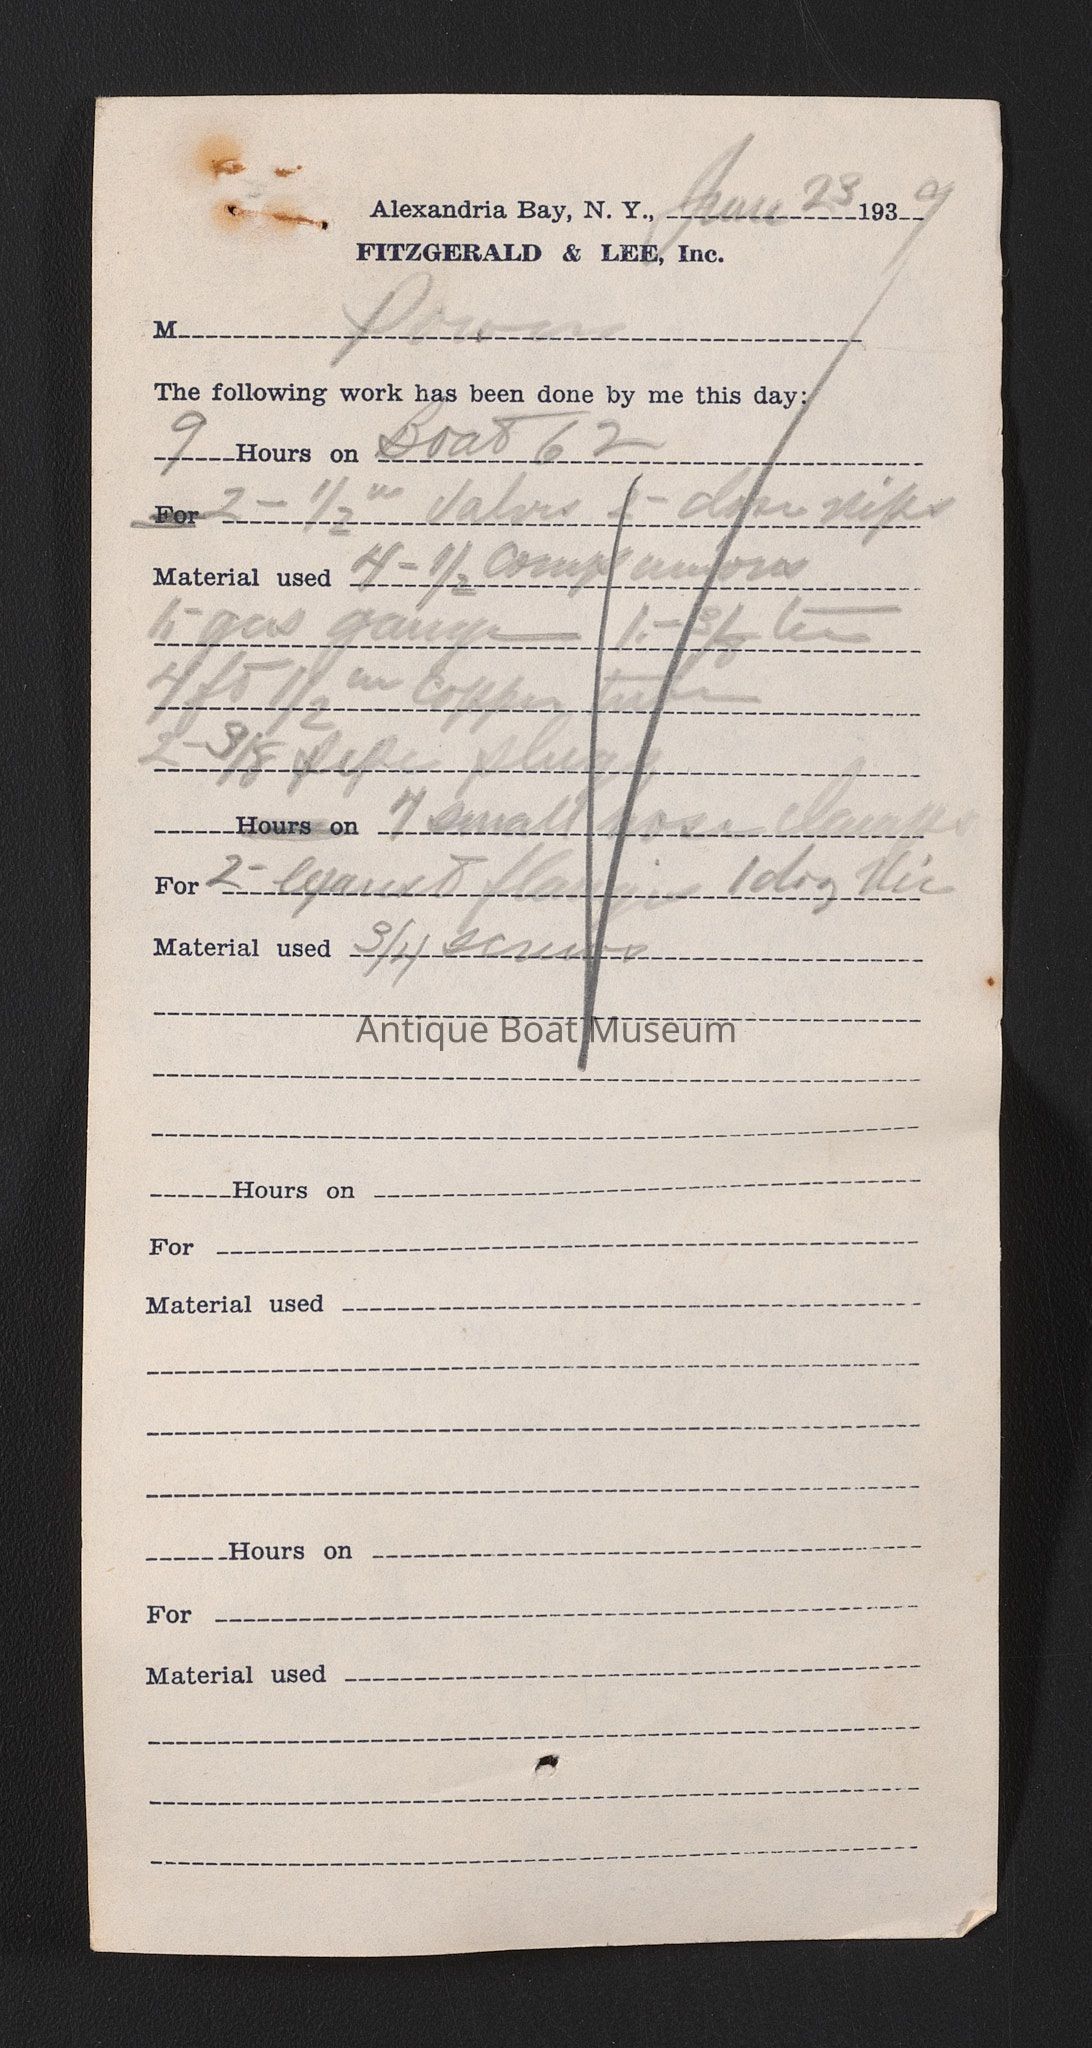 Alexandria Bay, N. Y., June 23 1939
FITZGERALD & LEE, Inc.
M
The following work has been done by me this day:
9 Hours on Boat 62
For 2 - 1/2 in Valves 2 - close nips
Material used 4 - 1/2 Comp unions
1 - gas gauge 1 - 3/8 tee
4 ft 1/2 in Copper tube
2 - 3/8 pipe plugs
Hours on 4 small hose clamps
For 2 - flanges 1 doz
Material used 3/4 screws
Antique Boat Museum
Hours on
For
Material used
Hours on
For
Material used